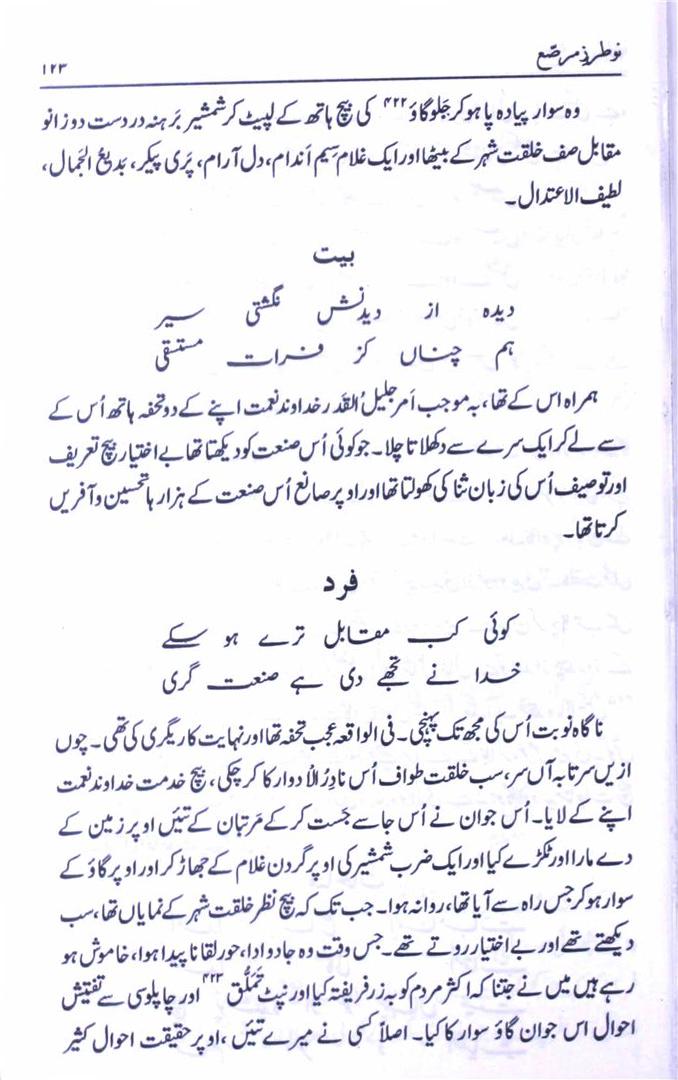 نو طرزِ مرصّع
۱۲۳
وہ سوار پیادہ پا ہو کر جَلو گاؤ ۴۲۲ کی بیچ ہاتھ کے لپیٹ کر شمشیر بَرہنہ در دست دو زانو
مقابل صف خلقت شہر کے بیٹھا اور ایک غلام سِیم اَندام، دل آرام، پَری پیکر، بَدیعُ الجَمال،
لطیف الاعتدال۔
بیت
دیدہ از دیدنش نگشتی سیر
ہم چناں کز فرات مستسقی
ہمراہ اس کے تھا، بہ موجب اَمر جلیلُ القَدر خداوند نعمت اپنے کے دو تحفہ ہاتھ اُس کے
سے لے کر ایک سرے سے دکھلاتا چلا۔ جو کوئی اُس صنعت کو دیکھتا تھا بے اختیار بیچ تعریف
اور توصیف اُس کی زبان ثنا کی کھولتا تھا اور اوپر صانع اُس صنعت کے ہزار ہا تحسین و آفریں
کرتا تھا۔
فرد
کوئی کب مقابل ترے ہو سکے
خدا نے تجھے دی ہے صنعت گری
ناگاہ نوبت اُس کی مجھ تک پہنچی۔ فی الواقعہ عجب تحفہ تھا اور نہایت کاریگری کی تھی۔ چوں
ازیں سر تا بہ آں سر، سب خلقت طواف اُس نادِرُ الاَدوار کا کر چکی، بیچ خدمت خداوند نعمت
اپنے کے لایا۔ اُس جوان نے اُس جا سے جست کر کے مَرتبان کے تئیں اوپر زمین کے
دے مارا اور ٹکڑے کیا اور ایک ضرب شمشیر کی اوپر گردن غلام کے جھاڑ کر اور اوپر گاؤ کے
سوار ہو کر جس راہ سے آیا تھا، روانہ ہوا۔ جب تک کہ بیچ نظر خلقت شہر کے نمایاں تھا، سب
دیکھتے تھے اور بے اختیار روتے تھے۔ جس وقت وہ جادو ادا، حور لقا ناپیدا ہوا، خاموش ہو
رہے ہیں میں نے جتنا کہ اکثر مردم کو بہ زر فریفتہ کیا اور نپٹ تَمَلُّق ۴۲۳ اور چاپلوسی سے تفتیش
احوال اس جوان گاؤ سوار کا کیا۔ اصلاً کسی نے میرے تئیں، اوپر حقیقت احوال کثیر